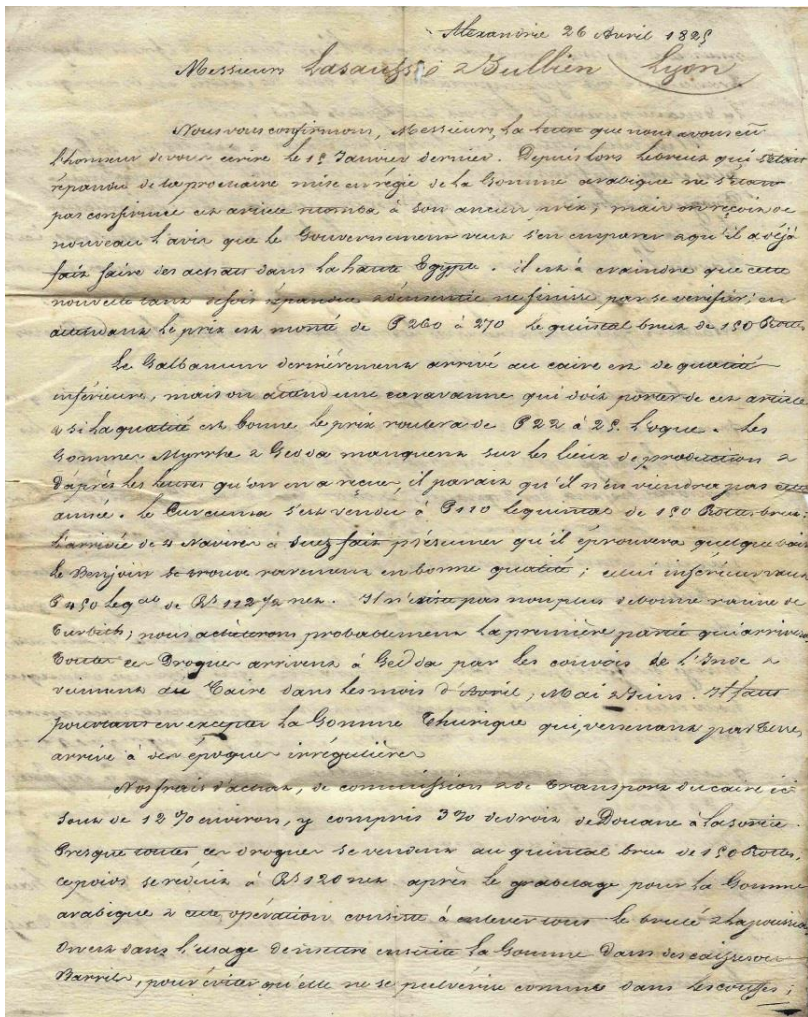 Alexandrie 26 Avril 1825
Messieurs Lasausse & Jullien Lyon
Nous vous confirmons, Messieurs, la lettre que nous avons eu
l'honneur de vous écrire le 15 Janvier dernier. Depuis lors le bruit qui s'était
répandu de la prochaine mise en régie de la Gomme arabique ne s'étant
pas confirmé cet article tomba à son ancien prix; mais on reçoit de
nouveau l'avis que le Gouvernement veut s'en emparer & qu'il a déjà
fait faire des achats dans la haute Egypte. il est à craindre que cette
nouvelle tant de fois répandue & démentie ne finisse par se vérifier; en
attendant le prix est monté de P 260 à 270 le quintal brut de 150 Rottes
Le Galbanum dernièrement arrivé au caire est de qualité
inférieure, mais on attend une caravanne qui doit porter de cet article
& si la qualité est bonne le prix roulera de P 22 à 25. l'oque. Les
Gommes Myrrhe & Gedda manquent sur les lieux de production &
d'après les lettres qu'on en a reçues, il parait qu'il n'en viendra pas cette
année. le Curcuma s'est vendu à P 110 le quintal de 150 Rottes brut;
l'arrivée de 4 Navires à Suez fait présumer qu'il éprouvera quelque baisse
le Benjoin se trouve rarement en bonne qualité; celui inférieur vaut
P 450 le qal de Rs 112 1/2 net. Il n'existe pas non plus de bonne racine de
Turbith; nous achèterons probablement la première partie qui arrivera
Toutes ces Drogues arrivent à Gedda par les convois de l'Inde &
viennent au Caire dans les mois d'Avril, Mai & Juin. Il faut
pourtant en excepter la Gomme Thurique qui, venant par Terre,
arrive à des époques irrégulières
Nos frais d'achat, de commission & de transport du caire ici
sont de 12 % environ, y compris 3 % de droit de Douane à la sortie.
Presque toutes ces drogues se vendent au quintal brut de 150 Rottes,
ce poids se réduit à Rs 120 net après le grabelage pour la Gomme
arabique & cette opération consiste à enlever tout le brulé & la poussière
On est dans l'usage de mettre ensuite la Gomme dans des caisses ou
Barrils, pour éviter qu'elle ne se pulvérise comme dans les couffes;